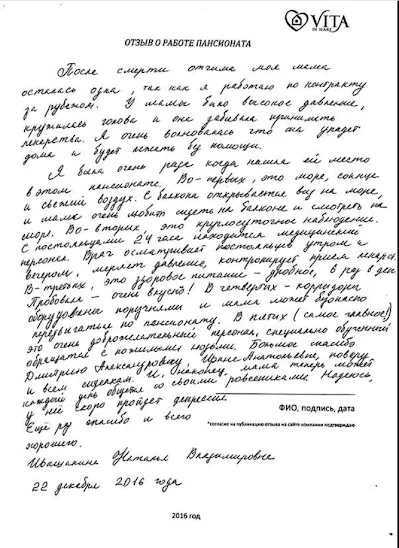 VITA
DI MARE
ОТЗЫВ О РАБОТЕ ПАНСИОНАТА
После смерти отчима моя мама
осталась одна, так как я работаю по контракту
за рубежом. У мамы было высокое давление,
кружилась голова и она забывала принимать
лекарства. Я очень волновалась что она упадет
дома и будет лежать без помощи.
Я была очень рада когда нашла ей место
в этом пансионате. Во-первых, это море, солнце
и свежий воздух. С балкона открывается вид на море,
и мама очень любит сидеть на балконе и смотреть на
море. Во-вторых это круглосуточное наблюдение.
С постояльцами 24 часа находится медицинский
персонал. Врач осматривает постояльцев утром и
вечером, меряет давление, контролирует прием лекарств.
В-третьих, это здоровое питание - дробное, 6 раз в день
Пробовала - очень вкусно! В четвертых - коридоры
оборудованы поручнями и мама может безопасно
передвигаться по пансионату. В пятых (самое главное!)
это очень доброжелательный персонал, специально обученный
обращаться с пожилыми людьми. Большое спасибо
Дмитрию Александровичу, Ирине Анатольевне, повару
и всем сиделкам. И, наконец, мама теперь может
каждый день общаться со своими ровесниками. Надеюсь,
у неё скоро пройдет депрессия.
Ещё раз спасибо и всего
хорошего.
ФИО, подпись, дата
*согласие на публикацию отзыва на сайте компании подтверждаю
Наталья Владимировна
22 декабря 2016 года
2016 год